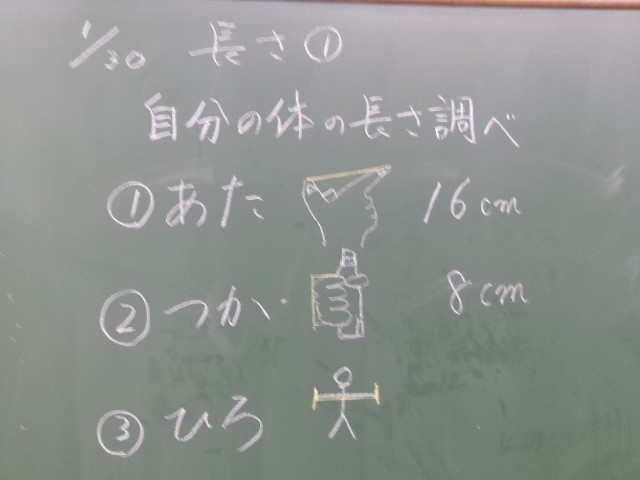 1/30 長さ①
自分の体の長さ調べ
①あた 16cm
②つか 8cm
③ひろ